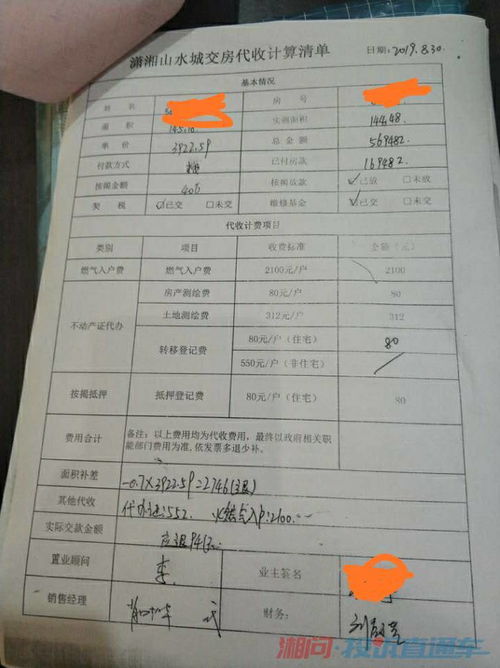 潇湘山水城交房代收计算清单 日期:2019.8.30.
基本情况
姓 名 房 号
面 积 145.10. 实测面积 144.48.
单 价 3922.59 总金额 569482.
付款方式 已付房款 169482.
按揭金额 400 按揭放款 ☑已放 □未放
契 税 ☑已交 □未交 维修基金 ☑已交 □未交
代收计费项目
类别 项目 收费标准 金额(元)
燃气入户费 燃气入户费 2100元/户 2100
不动产证代办 房产测绘费 80元/户 80
土地测绘费 312元/户 312
转移登记费 80元/户(住宅) 80
550元/户(非住宅)
按揭抵押 抵押登记费 80元/户(住宅) 80
费用合计 备注:以上费用均为代收费用,最终以政府相关职
能部门费用为准,依发票多退少补。
面积补差 -0.7×3922.59=2746(退)
其他代收 代办证:552. 入户:2100.
实际交款金额 应退94元.
置业顾问 李 业主签名
销售经理 财务: 刘
湘问·投诉直通车